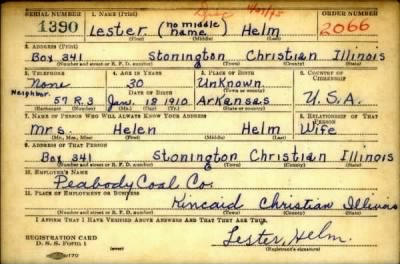 SERIAL NUMBER 1. NAME (Print) ORDER NUMBER
1390 Lester (no middle name) Helm 2066
(First) (Middle) (Last)
2. ADDRESS (Print)
Box 341 Stonington Christian Illinois
(Number and street or R. F. D. number) (Town) (County) (State)
3. TELEPHONE 4. AGE IN YEARS 5. PLACE OF BIRTH 6. COUNTRY OF CITIZENSHIP
None 30 Unknown
Neighbor. DATE OF BIRTH (Town or county)
57 R.3 Jan. 18 1910 Arkansas U.S.A.
(Exchange) (Number) (Mo.) (Day) (Yr.) (State or country)
7. NAME OF PERSON WHO WILL ALWAYS KNOW YOUR ADDRESS 8. RELATIONSHIP OF THAT PERSON
Mrs. Helen Helm Wife
(Mr., Mrs., Miss) (First) (Middle) (Last)
9. ADDRESS OF THAT PERSON
Box 341 Stonington Christian Illinois
(Number and street or R. F. D. number) (Town) (County) (State)
10. EMPLOYER'S NAME
Peabody Coal Co.
11. PLACE OF EMPLOYMENT OR BUSINESS
Kincaid Christian Illinois
(Number and street or R. F. D. number) (Town) (County) (State)
I AFFIRM THAT I HAVE VERIFIED ABOVE ANSWERS AND THAT THEY ARE TRUE.
REGISTRATION CARD
D. S. S. Form 1 Lester Helm.
(Registrant's signature)